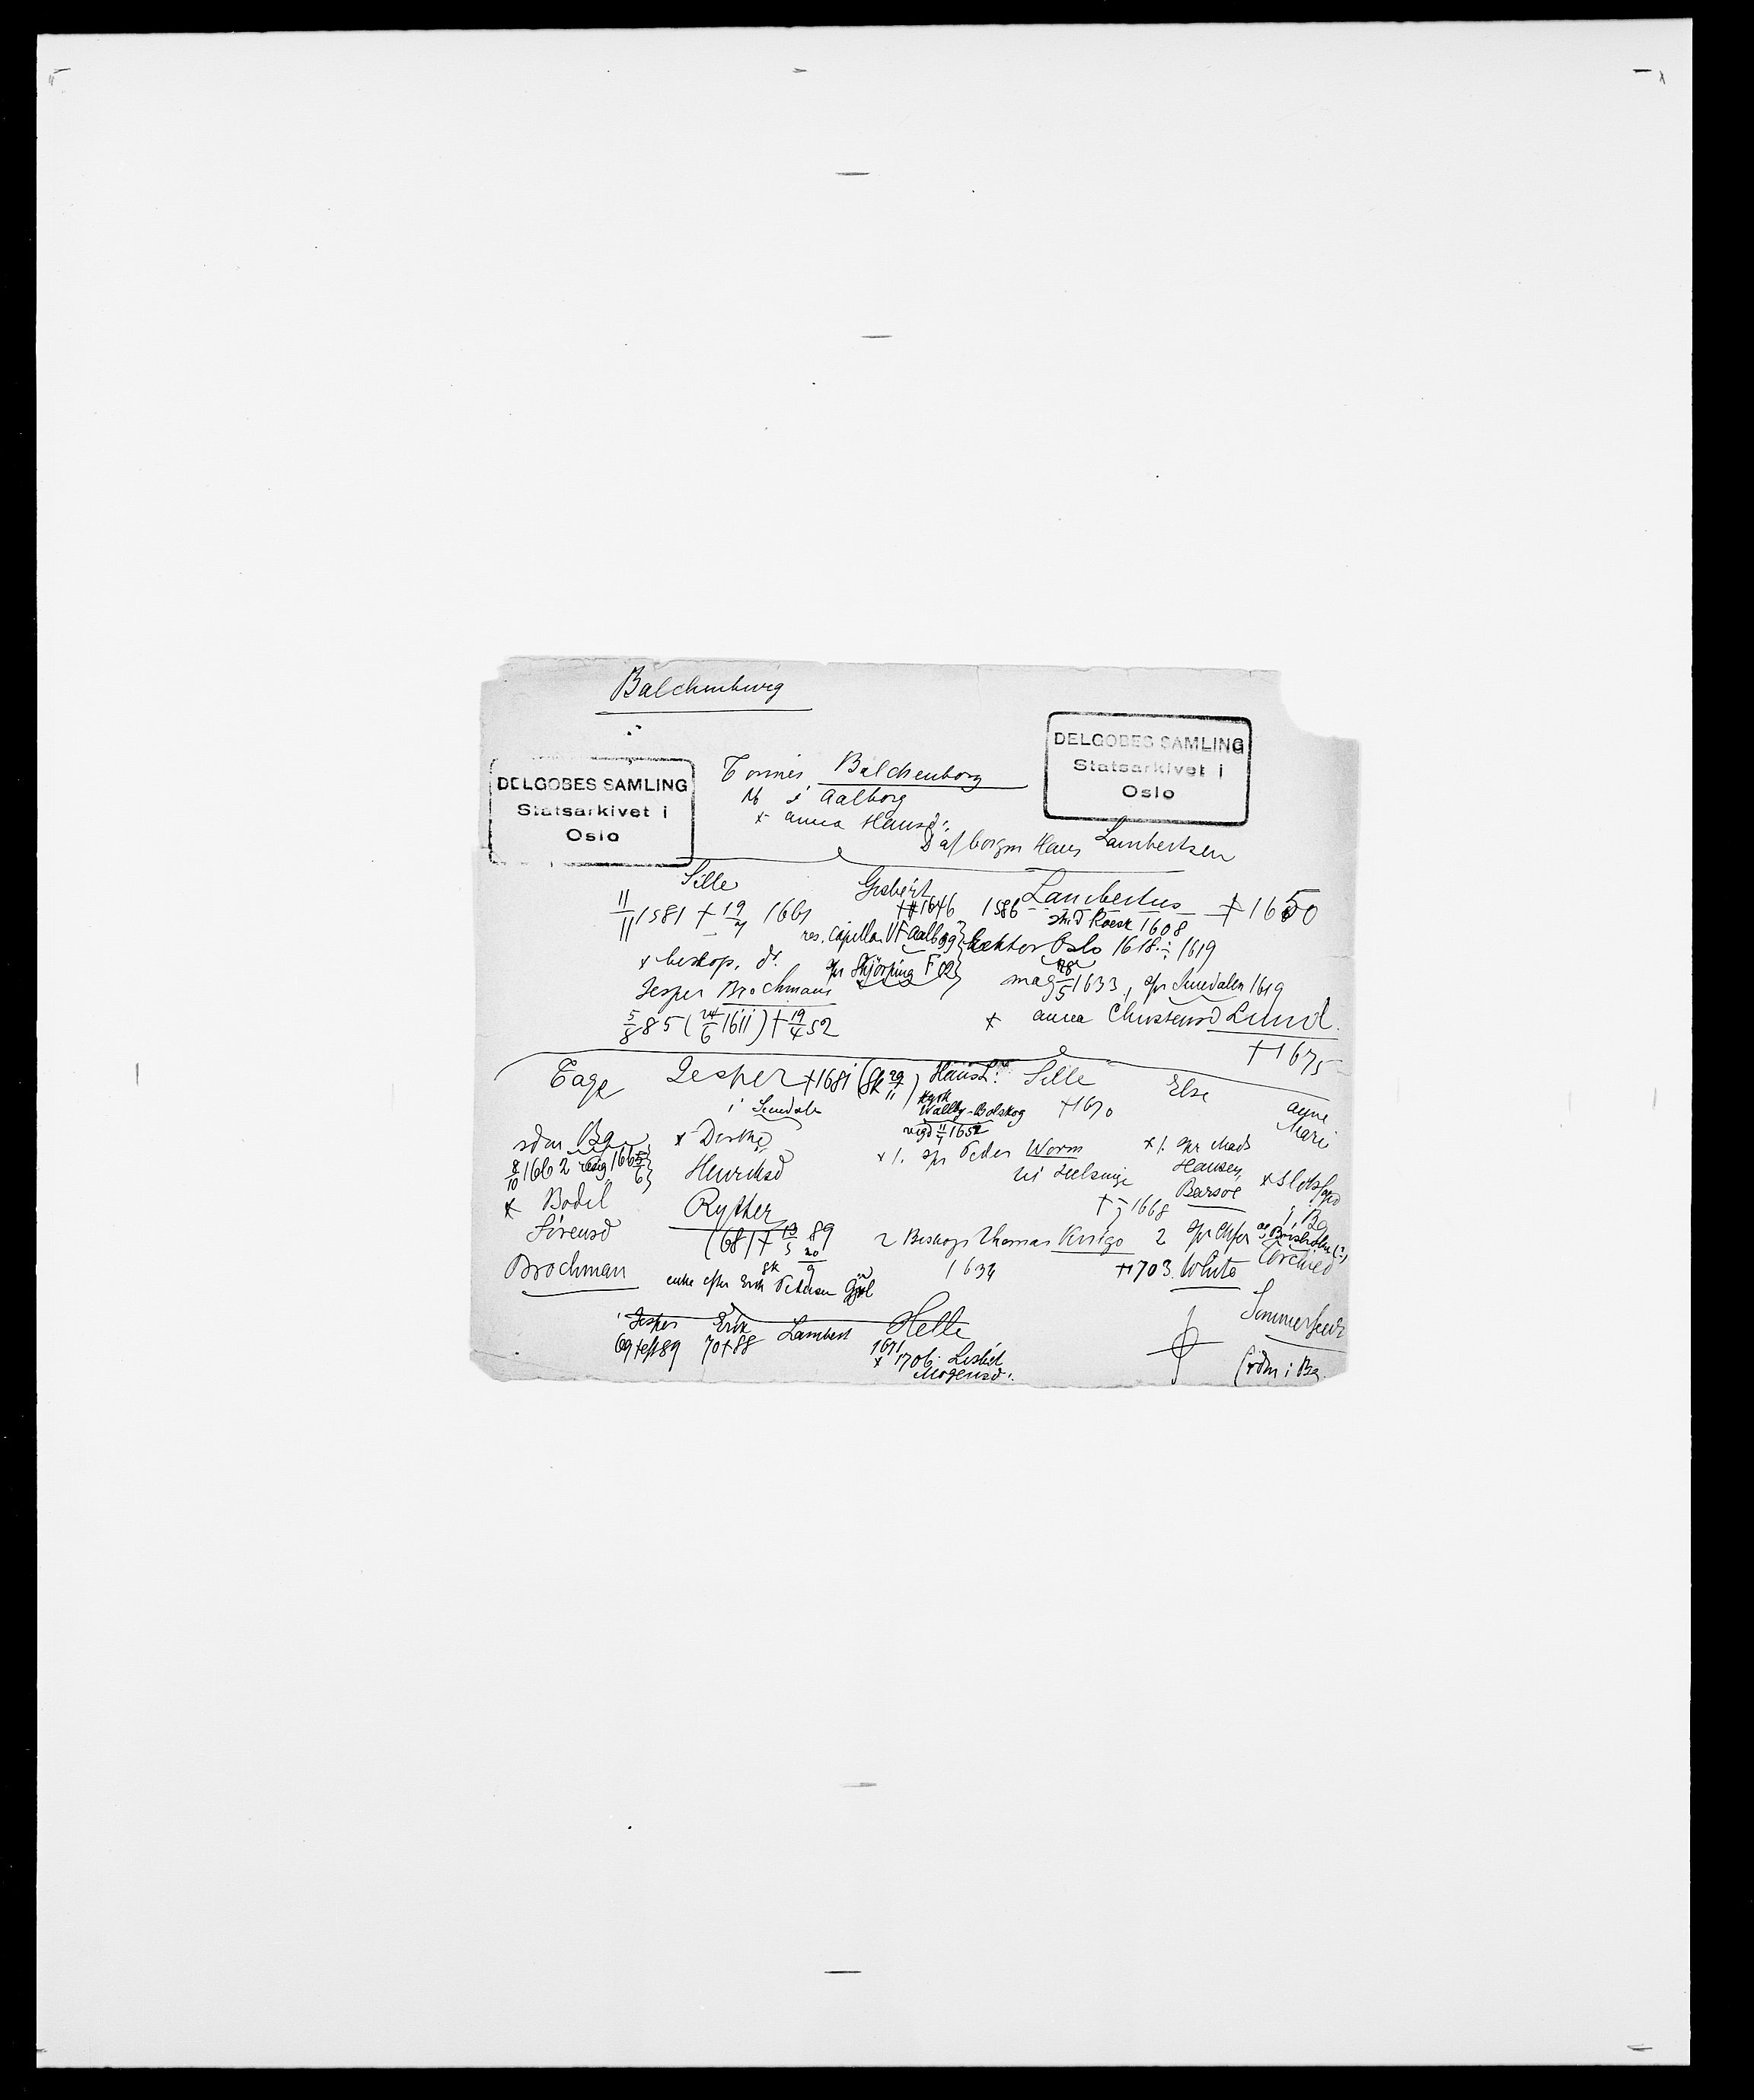 Balchenburg
DELGOBES SAMLING
Statsarkivet i
Oslo
DELGOBES SAMLING
Statsarkivet i
Oslo
Tønnes Balchenborg
i Aalborg
x Anna Hansd:
D af borgm Hans Lambertsen
Sille
11/11 1581 † 19/7 1661
x beskop. dr.
Jesper Brochmann
5/8 85 (24/6 1611) † 19/4 52
Gisbert
† 1646
res. capellan VF Aalborg
spr Skjörping F 02
1586 Lambertus † 1650
stud Roesk 1608
Lektor Oslo 1618 ÷ 1619
mag 28/5 1633, spr Smedalen 1619
x Anna Christensd Lund.
† 1675
Tage
rdm Bg
8/10 1662
x Bodil
Sörensd
Brochman
Jesper † 1681 (sk 29/11)
i Semdal
x Dorthe
Henriksd
Ryther
(68) † 13/3 89
sk 20/9
enke efter Erik Petersen
Hans L:
Wallby-Bolskog
vigd 11/7 1652
Sille
† 1670
x 1. spr Peder Worm
† 1668
2 Biskop Thomas Kingo
1634
Else
x 1. spr Mads
Hansen
Barsöe
2 spr
† 1703. White
Anne
Marie
x Slotsfogd
i Bg
Sommerfeldt
(rdm i Bg
Jesper
69 † eft 89
Erik
70 † 88
Lambert
Helle
1671
x 1706. Lisbet
Mogensd: